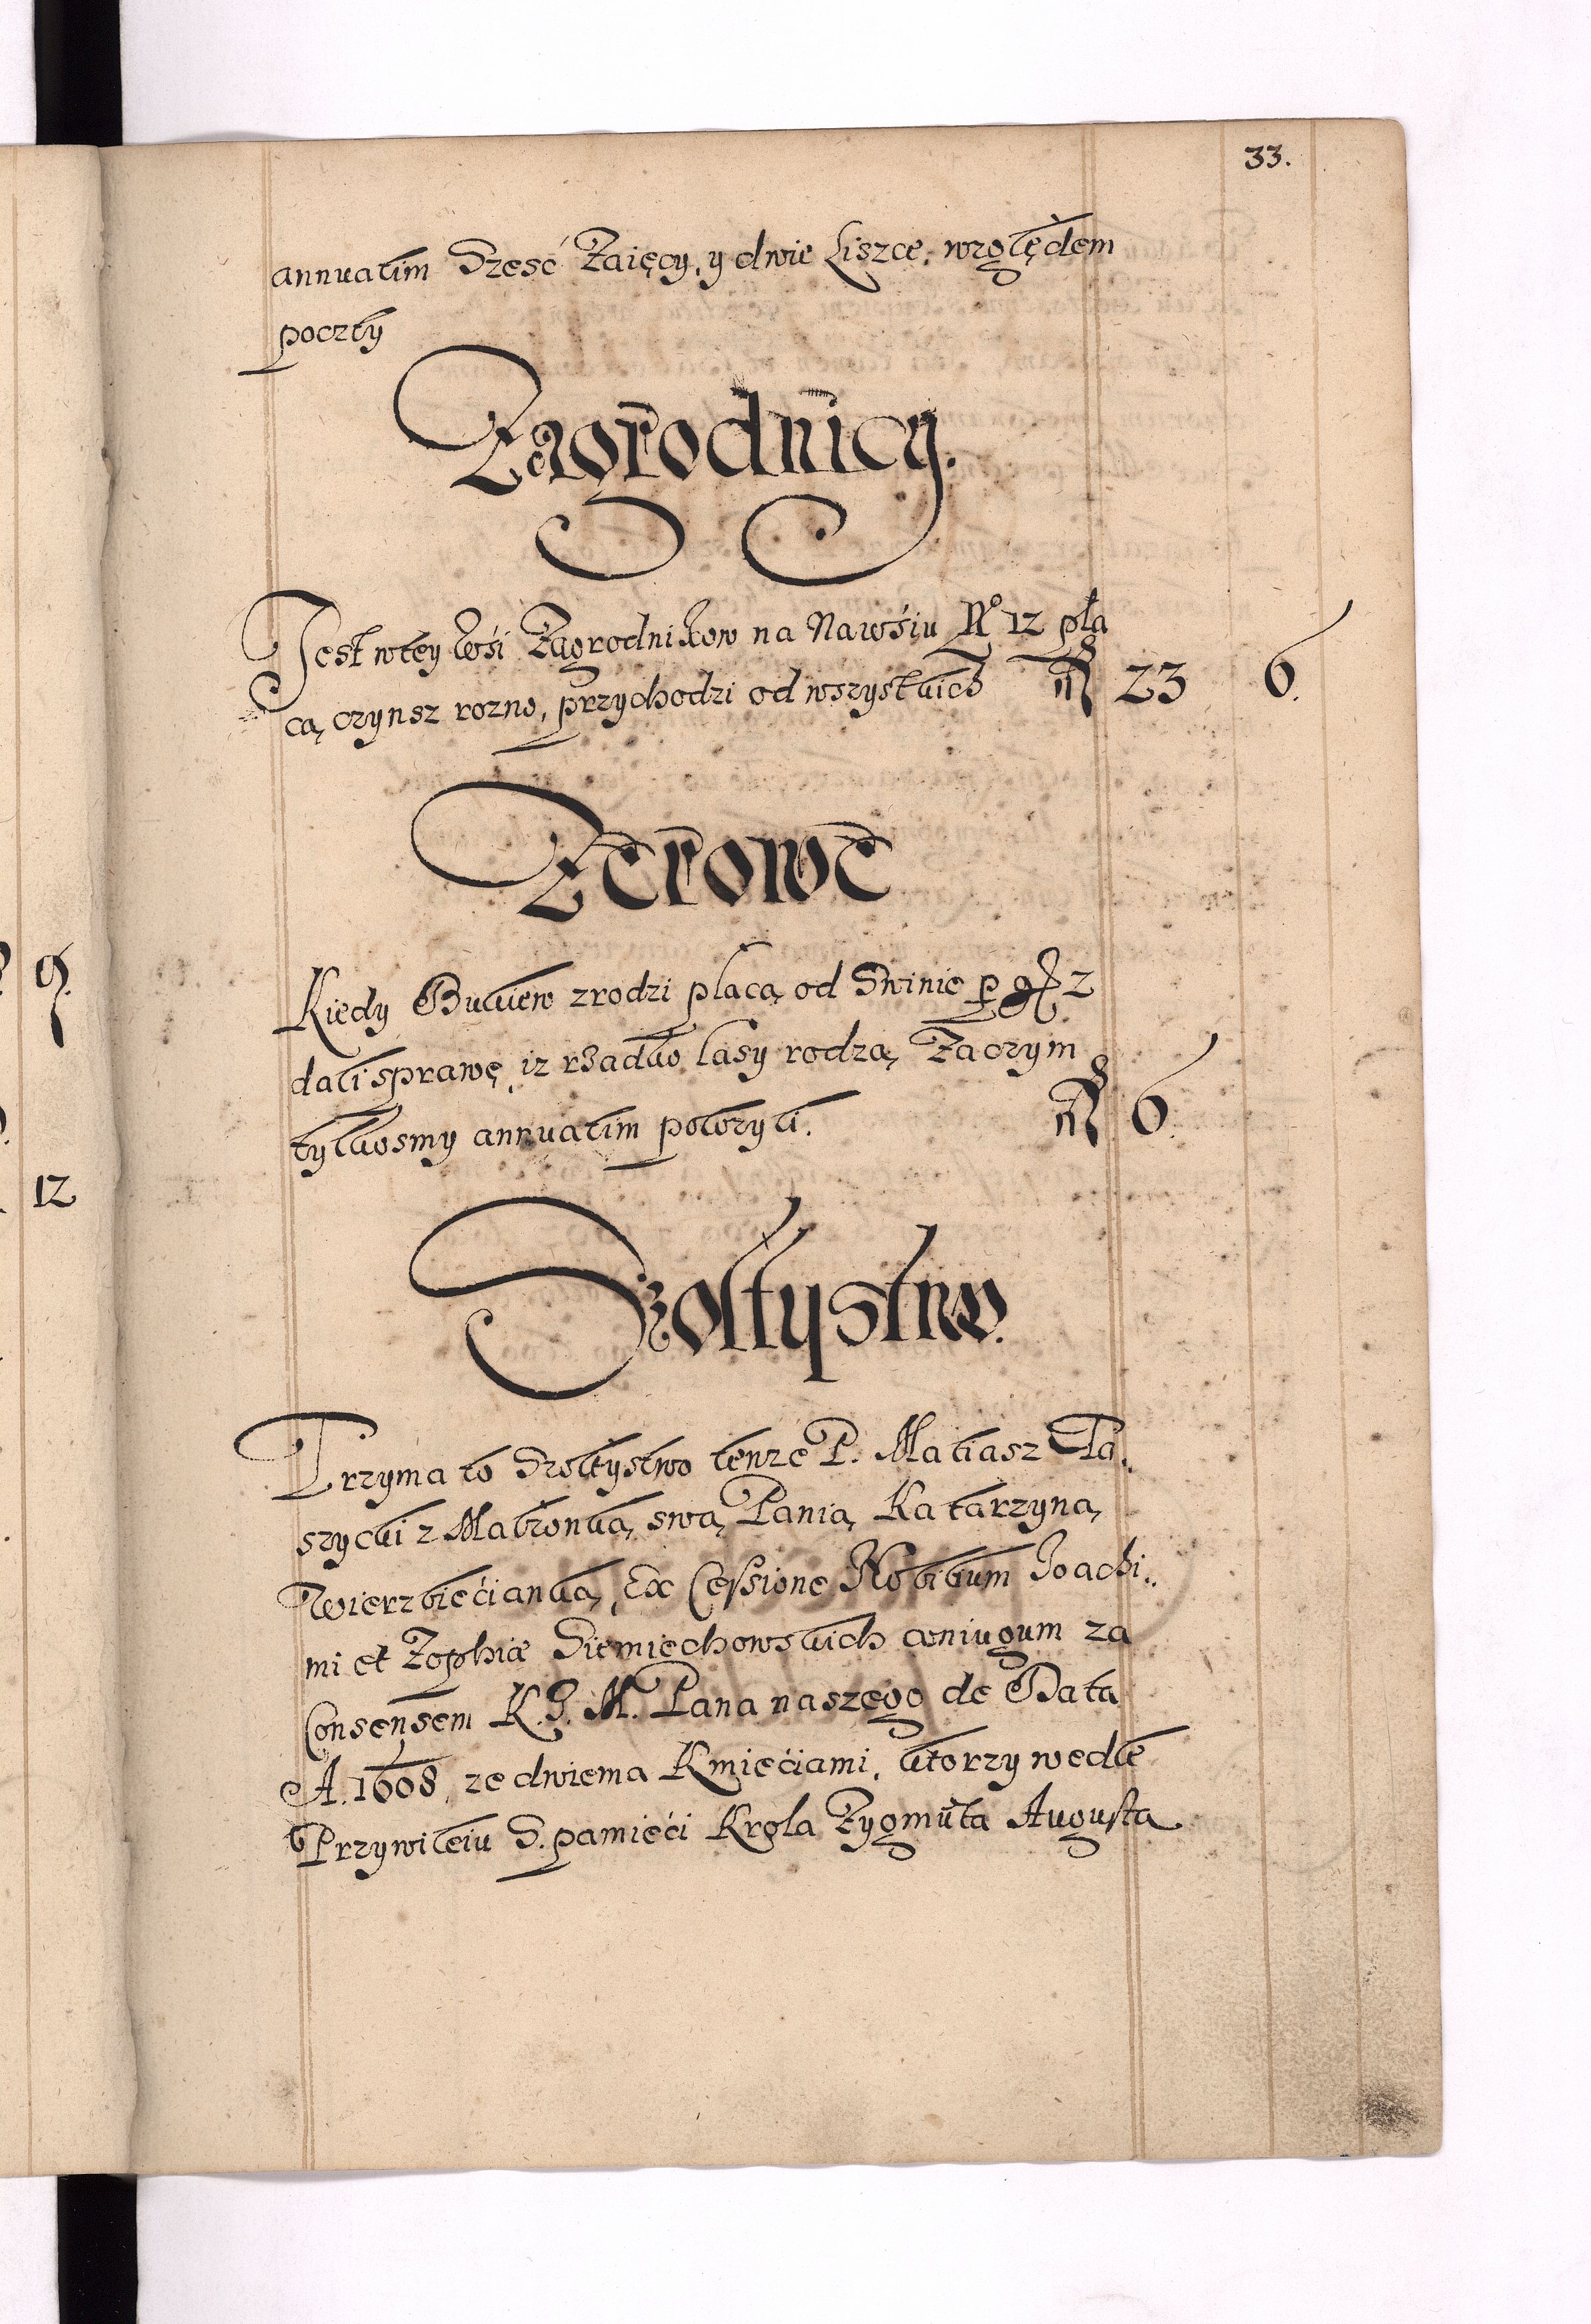 33.
annuatim Szesć Zaięcy, y dwie Liszce, względem
poczty
Zagrodnicy.
Jest wtey Wśi Zagrodnikow na Nawśiu No 12 pła
cą czynsz rozno, przychodzi od wszystkich fl 23 6.
Zerowe
Kiedy Bukiew zrodzi płacą od Swinie p gr 2
dali sprawę, iz rzadko lasy rodzą, Zaczym
tylkosmy annuatim połozyli. fl 6.
Szołtystwo.
Trzyma to Szołtystwo tenze P. Matiasz Ta..
szycki z Małzonką swą Panią Katarzyną
Wierzbięćianką, Ex Cessione Nobilium Joachi..
mi et Zophiæ Siemiechowskich coniugum za
Consensem K. J. M. Pana naszego de Data
A. 1608, ze dwiema Kmieciami, ktorzy wedle
Przywileiu S. pamięći Krola Zygmūta Augusta
9.
12